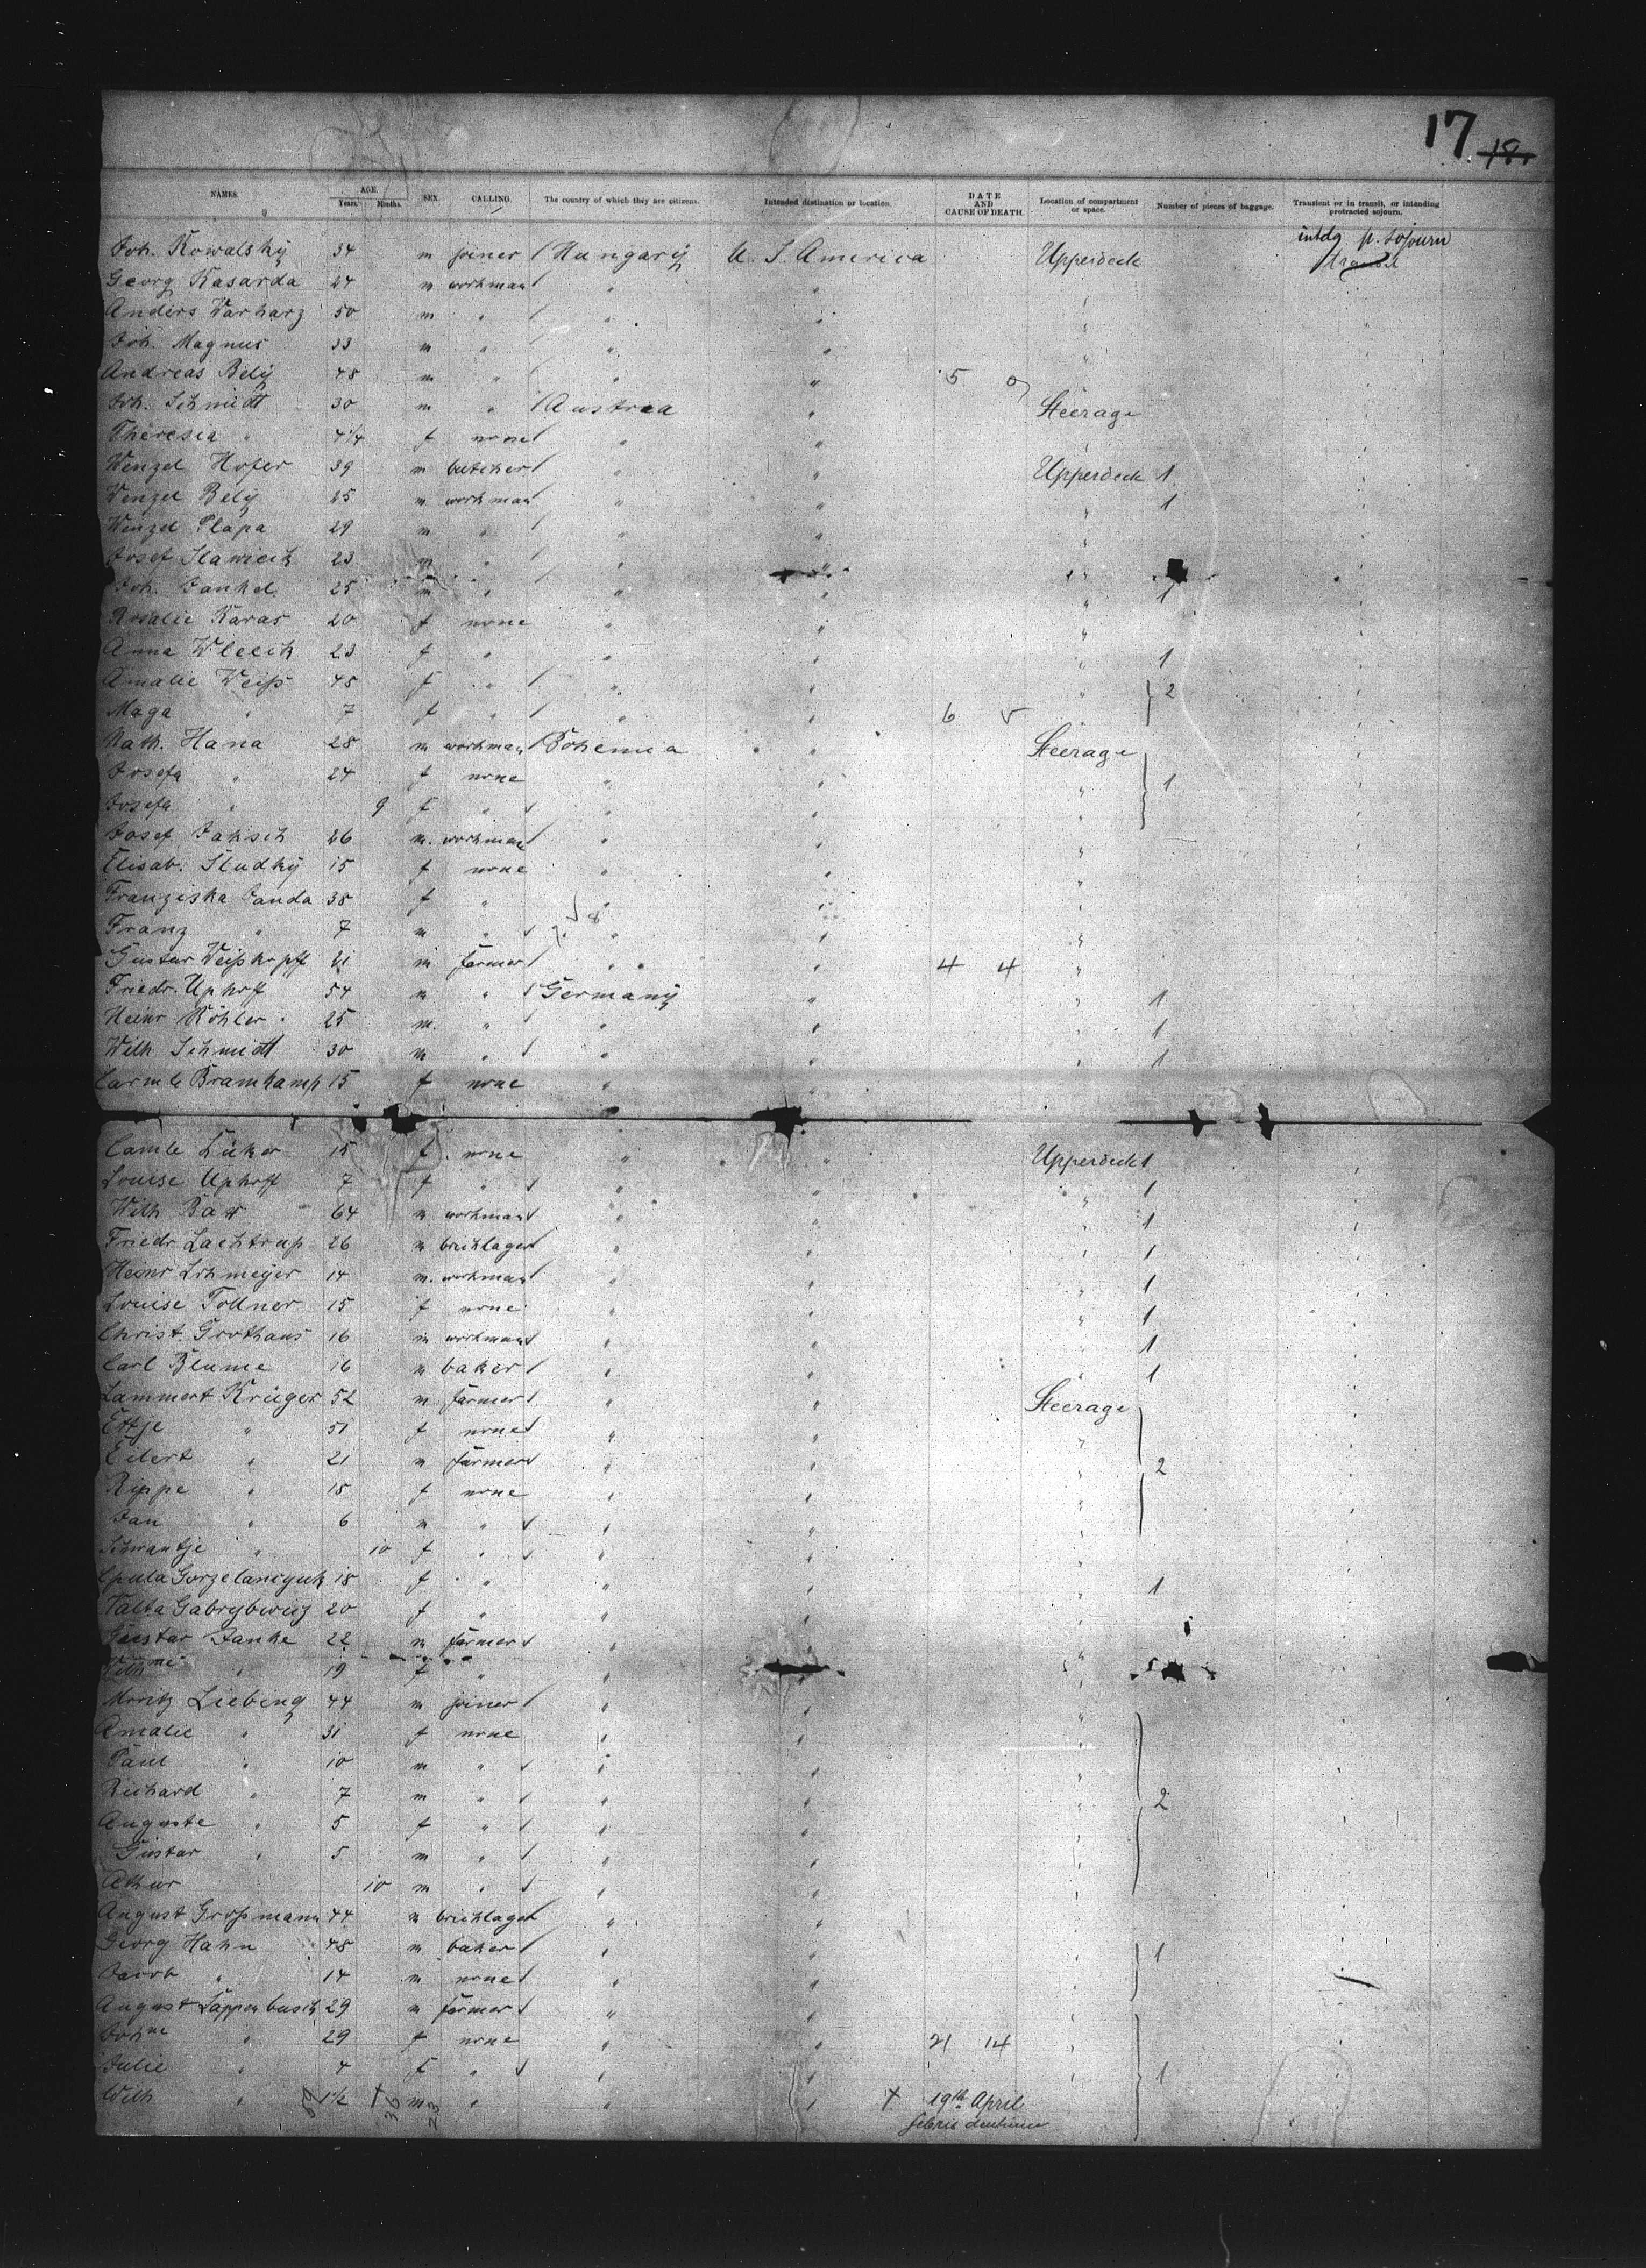 17 18.
NAMES. AGE. Years. Months. SEX. CALLING. The country of which they are citizens. Intended distination or location. DATE AND CAUSE OF DEATH. Location of compartment or space. Number of pieces of baggage. Transient or in transit, or intending protracted sojourn.
intdg p. sojourn
Joh. Kowalsky 34 m joiner / Hungary U. S. America Upperdeck transit
Georg Kasarda 24 m workman / " " "
Anders Warharz 50 m " / " " "
Joh. Magnus 33 m " " " "
Andreas Bely 48 m " / " " 5 0 "
Joh. Schmidt 30 m " / Austria " Steerage
Theresia " 4 1/4 f none / " " "
Wenzel Hofer 39 m butcher / " " Upperdeck 1
Wenzel Bely 25 m workman " " " 1
Wenzel Plapa 29 m " / " " "
Josef Slawicik 23 m " / " " "
Joh. Jankel 25 m " / " " " 1
Rosalie Karas 20 f none " " "
Anna Wlecik 23 f " " " " 1
Amalie Weiß 48 f " / " " " 2
Maga " 7 f " / " " 6 5
Math. Hana 28 m workman / Bohemia " Steerage
Josefa " 24 f none " " " 1
Josefa " 9 f " / " " "
Josef Jaksch 26 m. workman / " " "
Elisab. Studky 15 f none " " "
Franziska Janda 38 f " " " "
Franz " 7 m " / " " "
Gustav Weißkopff 21 m farmer / " " 4 4 "
Friedr. Uphoff 54 m " / Germany " " 1
Heinr Köhler 25 m. " / " " " 1
Wilh Schmidt 30 m " / " " " 1
Carmle Bramkamp 15 f none " "
Camle Lüker 15 f none " " Upperdeck 1
Louise Uphoff 7 f " / " " " 1
Wilh Bax 64 m workman / " " " 1
Friedr Lachtrup 26 m bricklayer / " " " 1
Heinr Lohmeyer 14 m. workman / " " " 1
Louise Tollner 15 f none " " " 1
Christ. Grothaus 16 m workman / " " " 1
Carl Blume 16 m baker / " " " 1
Lammert Krüger 52 m farmer / " " Steerage
Ettje " 51 f none / " " "
Eilert " 21 m farmer / " " " 2
Rippe " 18 f none " " "
Jan " 6 m " / " " "
Schwantje " 10 f " / " " "
18 f " " " " 1
20 f " " " "
Gustav Janke 22 m farmer / " " "
Wilhme " 19 f " " "
Moritz Liebing 44 m joiner / " " "
Amalie " 31 f none " " "
Paul " 10 m " / " " "
Richard " 7 m " / " " " 2
Auguste " 5 f " / " " "
Gustav " 5 m " / " " "
Athur 10 m " / " " "
August Großmann 44 m bricklayer " " "
Georg Hahn 48 m baker / " " " 1
Jacob " 14 m none / " " "
August Lappenbusch 29 m farmer / " " "
Johne " 29 f none " " 21 14 "
Julie " 4 f " / " " " 1
Wilh " 1 1/2 m " " " † 19th April
febris dentium